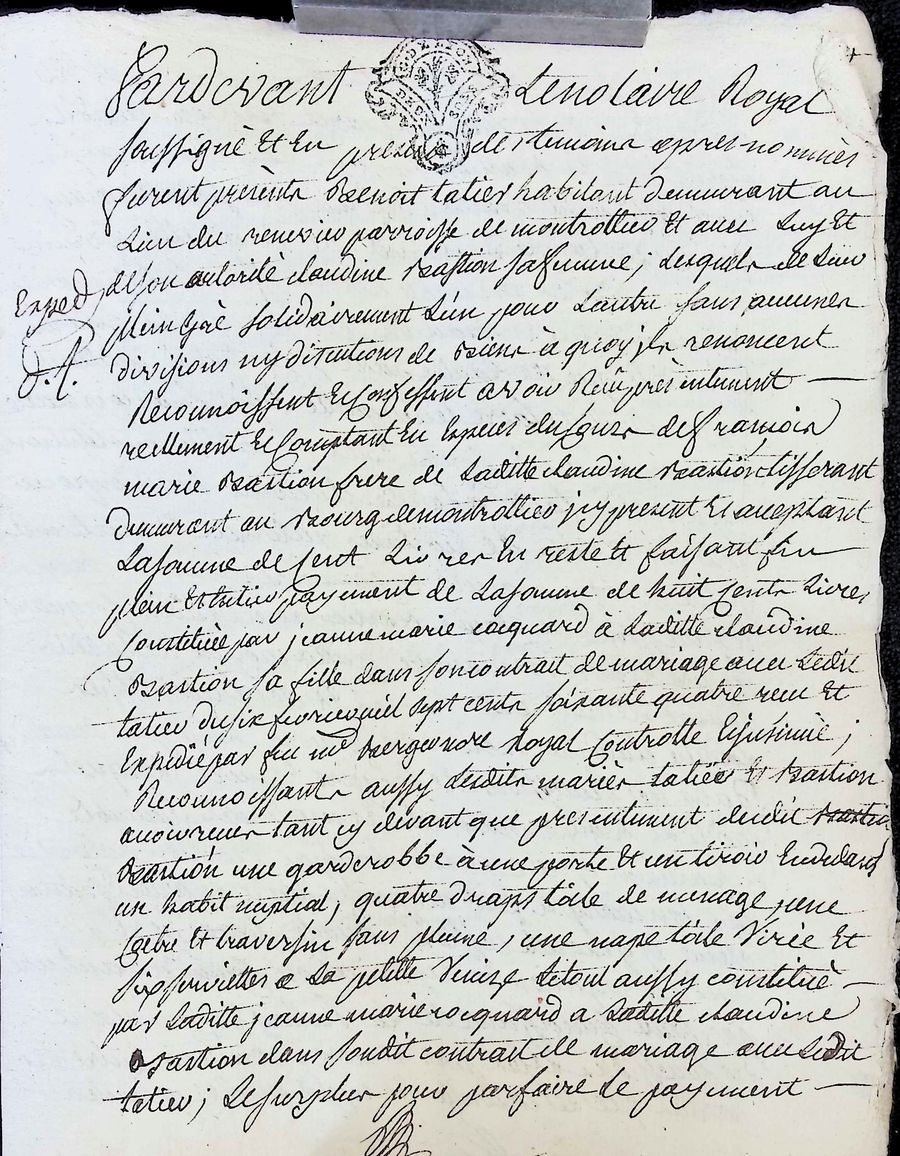 Pardevant Le notaire Royal
soussigné Et En presence des temoins apres nommés
furent présents Benoit tatieu habitant demeurant au
Lieu du parroisse de montrottier Et avec Luy Et
de son autorité claudine Bastion sa femme; Lesquels de Leur
Exped
plein Gré solidairement L'un pour L'autre sans aucunes
divisions ny discutions de biens à quoy jls renoncent
Reconnoissent & Confessent avoir Reçu présentement
reellement & Comptant En Especes du Cours de françois
marie Bastion frere de Laditte claudine Bastion tisserant
demeurant au Bourg de montrottier jcy present Et acceptant
La somme de Cent Livres En reste Et faisant fin
plein Et Entier payement de La somme de huit Cents Livres
Constituée par jeanne marie cocquard à Laditte claudine
Bastion sa fille dans son contrait de mariage avec Ledit
tatieu du six fevrier mil sept cents soixante quatre recu Et
Expedié par feu me Royal Controllé & jnsinué;
Reconnoissants aussy Lesdits mariés tatieu Et Bastion
avoir receu tant cy devant que presentement dudit
Bastion une garderobbe à une porte Et un tiroir En dedans
un habit nuptial, quatre draps toile de menage, une
Coetre Et traversin sans plume, une nape toile Et
six serviettes a La petite Venize Le tout aussy constitué
par Laditte jeanne marie cocquard a Laditte claudine
Bastion dans sondit contrait de mariage avec Ledit
tatieu; Le surplus pour parfaire Le payement